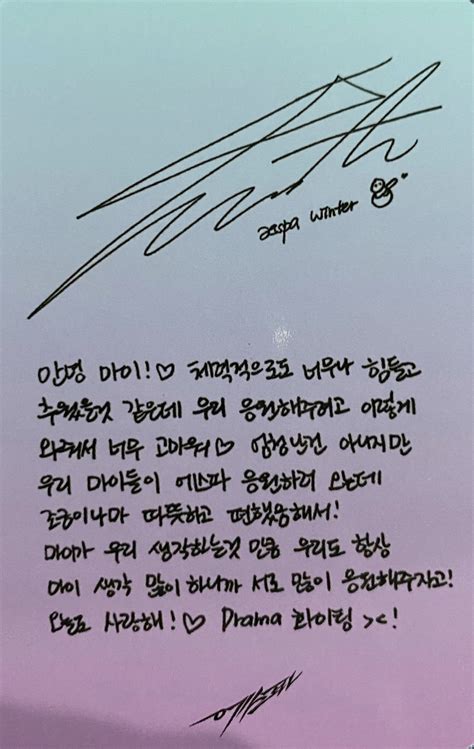 aespa winter
안녕 마이!♡ 체력적으로도 너무나 힘들고
추웠을것 같은데 우리 응원해주려고 이렇게
와줘서 너무 고마워♡ 엄청난건 아니지만
우리 마이들이 에스파 응원하러 오는데
조금이나마 따뜻하고 편했음해서!
마이가 우리 생각하는것 만큼 우리도 항상
마이 생각 많이 하니까 서로 많이 응원해주자고!
오늘도 사랑해!♡ Drama 화이팅 ><!
에스파